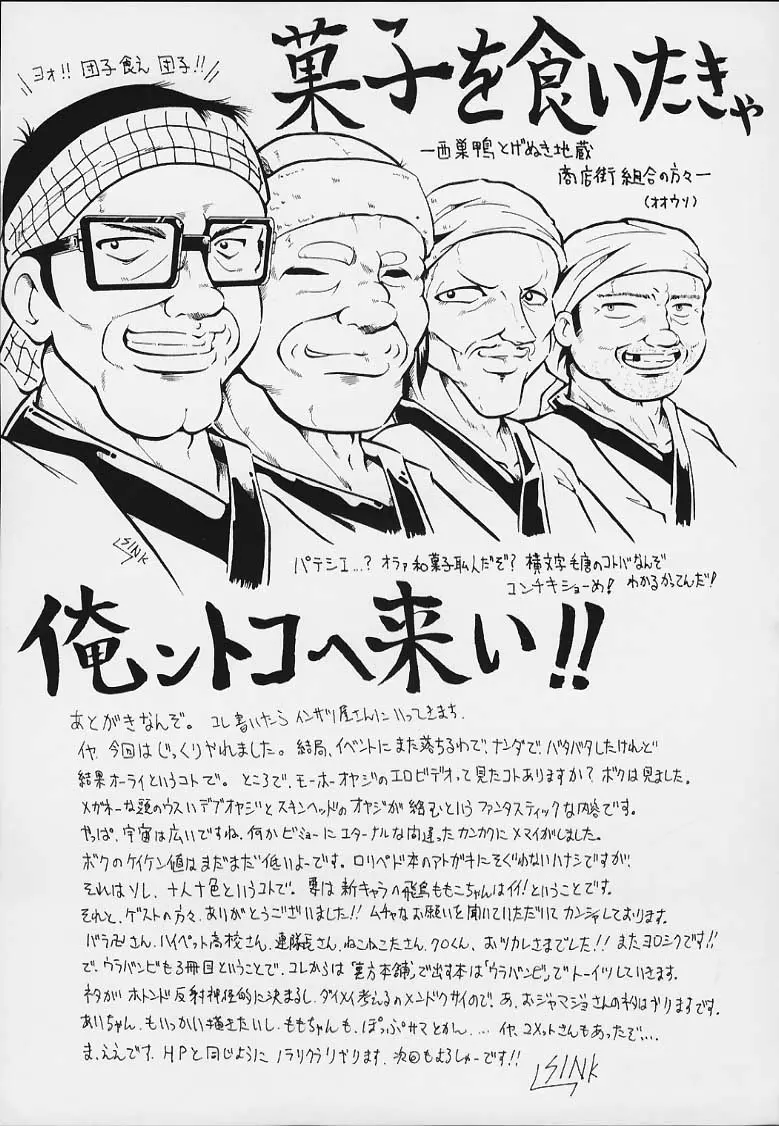 ヨォ!! 団子食え 団子!!
菓子を食いたきゃ
ー西巣鴨とげぬき地蔵
商店街組合の方々ー
(オオウソ)
SINK
パテシエ…? オラァ和菓子職人だぞ? 横文字毛唐のコトバなんぞ
コンチキショーめ! わかるかってんだ!
俺ントコへ来い!!
あとがきなんぞ。 コレ書いたらインサツ屋さんにいってきます.
イヤ、今回はじっくりやれました。結局、イベントにまた落ちるわで、ナンダで、バタバタしたけれど
結果オーライというコトで。ところで、モーホーオヤジのエロビデオって見たコトありますか? ボクは見ました。
メガネーな頭のウスいデブオヤジとスキンヘッドのオヤジが絡むというファンタスティックな内容です。
やっぱ、宇宙は広いですね、何かビミョーにエターナルな間違ったカンカクにメマイがしました。
ボクのケイケン値はまだまだ低いよーです。ロリペド本のアトガキにそぐわないハナシですが、
それはソレ、十人十色というコトで。要は新キャラの飛鳥ももこちゃんはイイ!ということです。
それと、ゲストの方々、ありがとうございました!! ムチャなお願いを聞いていただいてカンシャしております。
バラ卍さん、ハイペット高校さん、連隊長さん、ねこねこたさん、クロくん、おツカレさまでした!! またヨロシクです!!
で、ウラバンビも3冊目ということで、コレからは「裏方本舗」で出す本は「ウラバンビ」でトーイツしていきます。
ネタがホトンド反射神経的に決まるし、ダイメイ考えるのメンドクサイので。あ、おジャマジョさんのネタはやりますです。
あいちゃん、もいっかい描きたいし、ももちゃんも、ぽっぷサマとかん、… イヤ、コメットさんもあったぞ…。
ま、ええです、HPと同じようにノラリクラリやります、次回もよろしゅーです!!
SINK